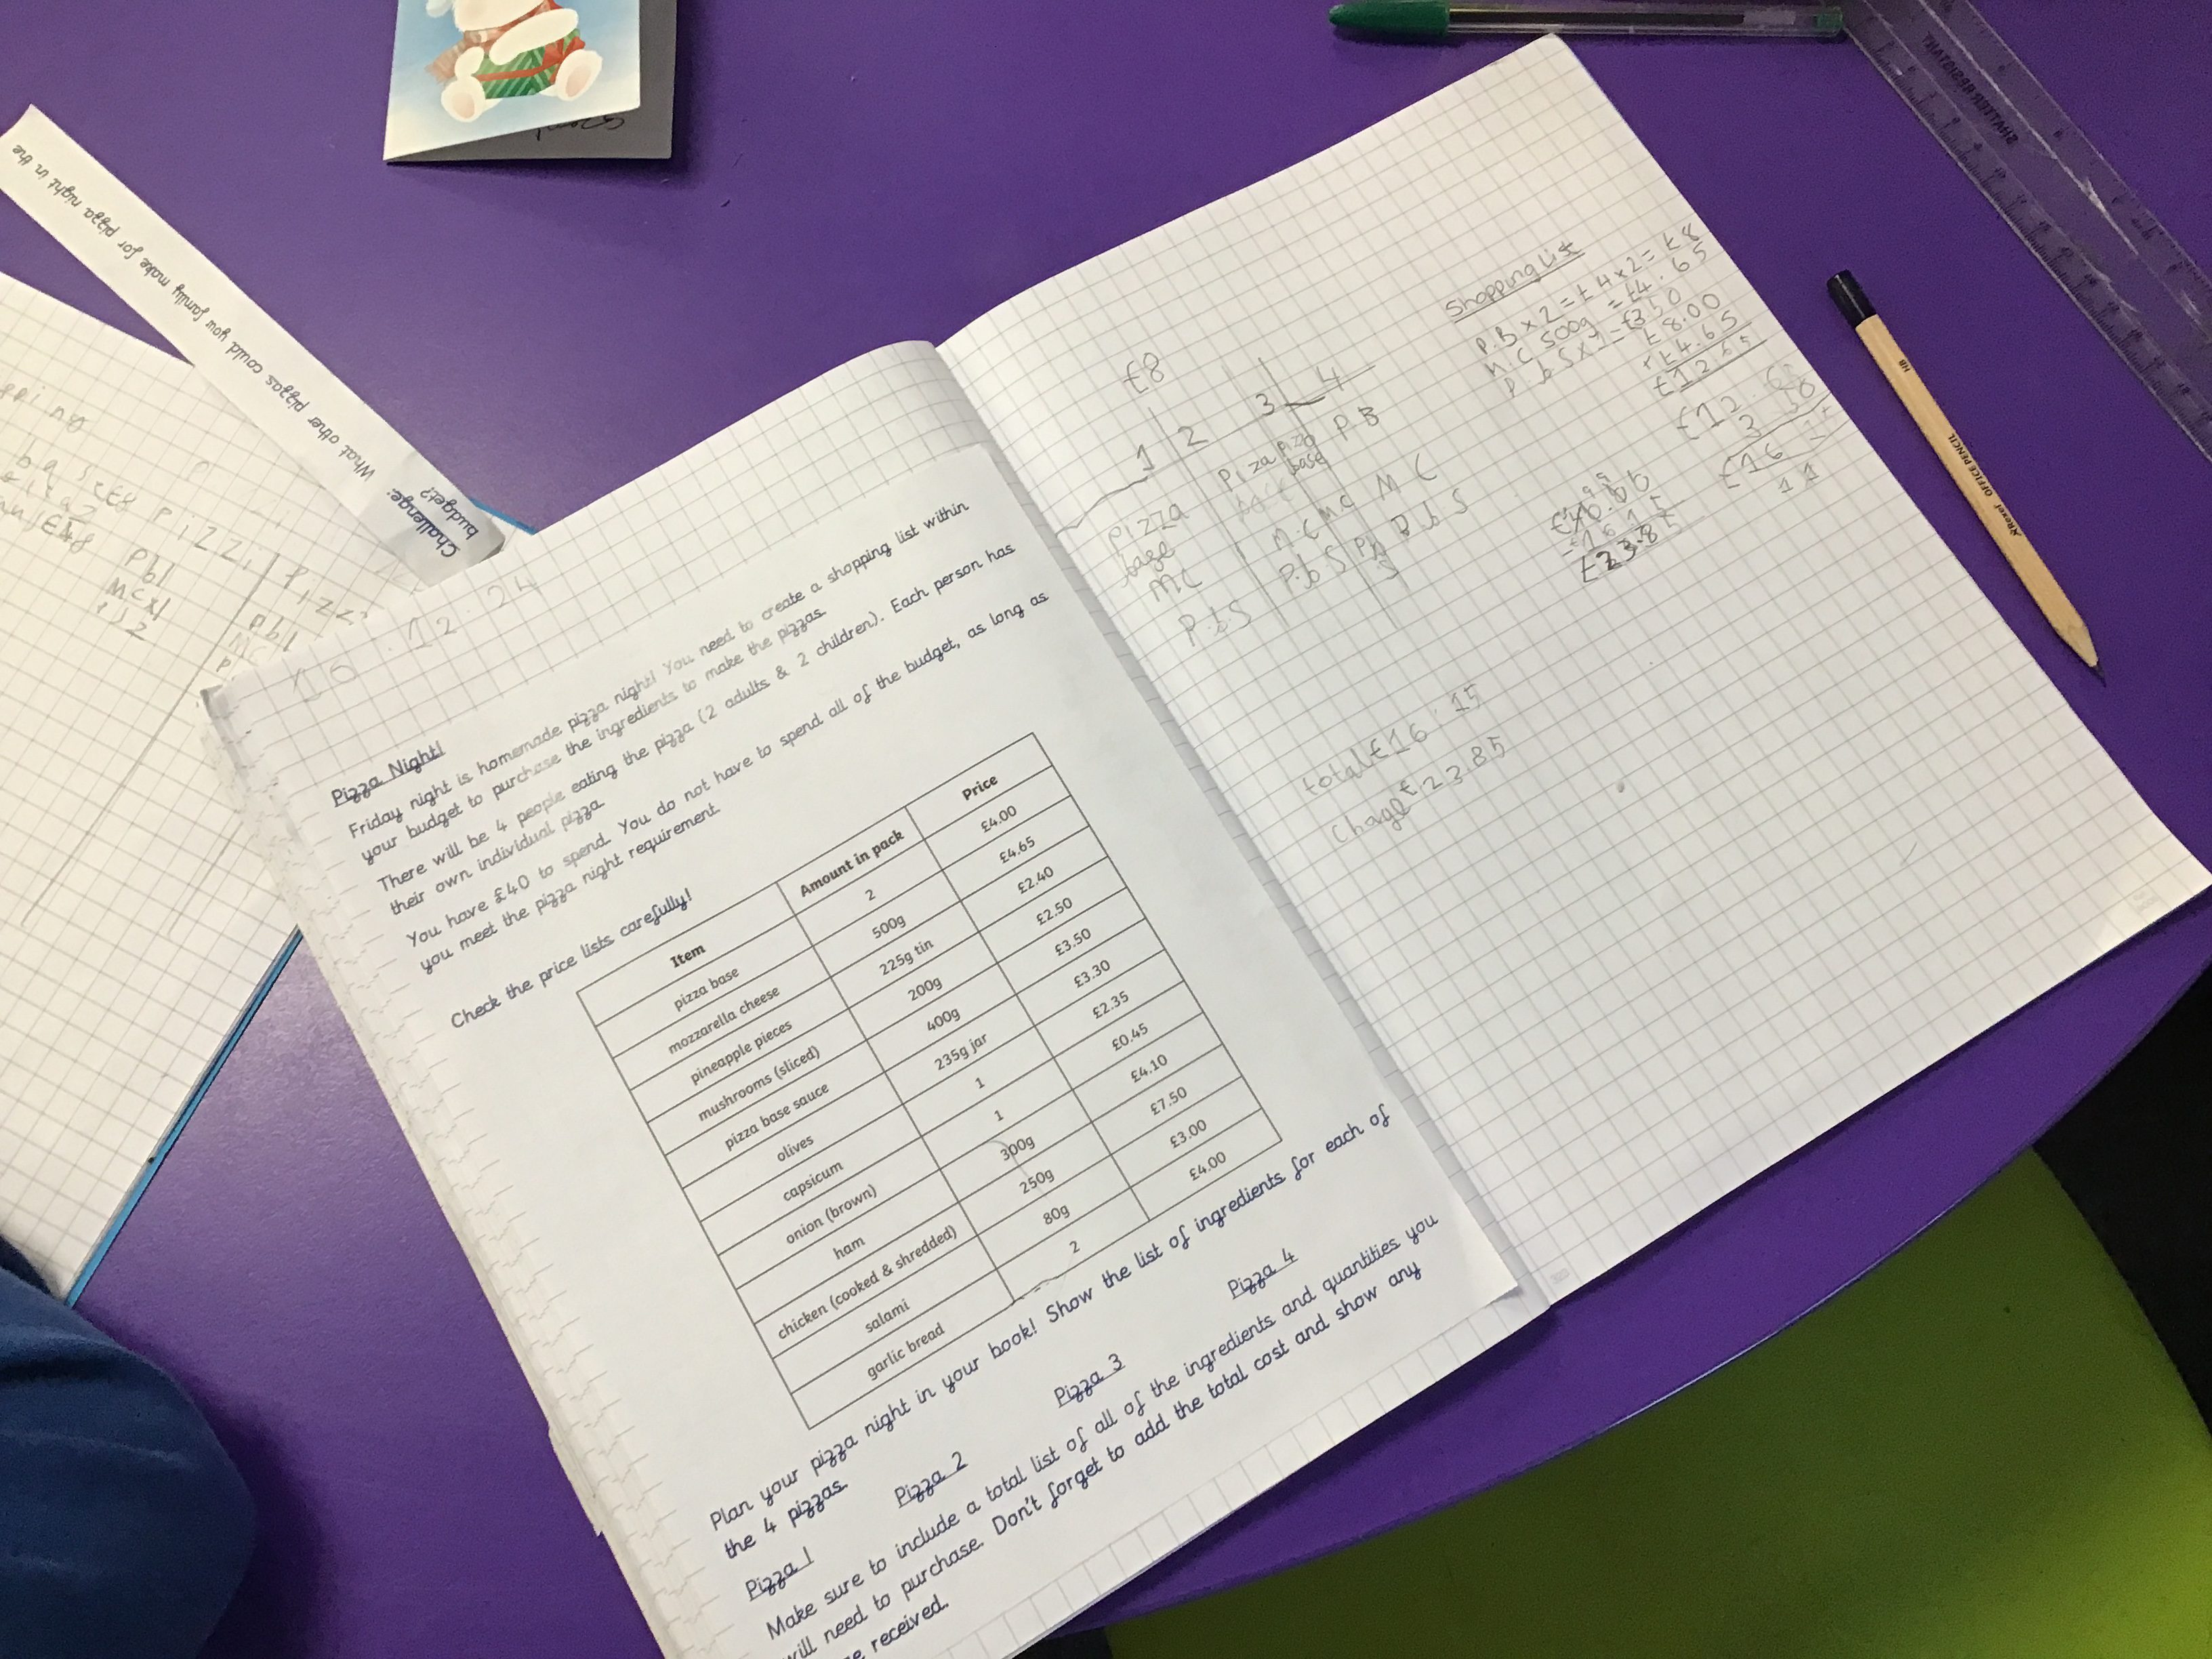 16.12.24
Pizza Night!
Friday night is homemade pizza night! You need to create a shopping list within
your budget to purchase the ingredients to make the pizzas.
There will be 4 people eating the pizza (2 adults & 2 children). Each person has
their own individual pizza.
You have £40 to spend. You do not have to spend all of the budget, as long as
you meet the pizza night requirement.
Check the price lists carefully!
Item Amount in pack Price
pizza base 2 £4.00
mozzarella cheese 500g £4.65
pineapple pieces 225g tin £2.40
mushrooms (sliced) 200g £2.50
pizza base sauce 400g £3.50
olives 235g jar £3.30
capsicum 1 £2.35
onion (brown) 1 £0.45
ham 300g £4.10
chicken (cooked & shredded) 250g £7.50
salami 80g £3.00
garlic bread 2 £4.00
Plan your pizza night in your book! Show the list of ingredients for each of
the 4 pizzas.
Pizza 1 Pizza 2 Pizza 3 Pizza 4
Make sure to include a total list of all of the ingredients and quantities you
will need to purchase. Don't forget to add the total cost and show any
received.
£8
1 2 3 4
pizza Pizza pizza P.B
base base
MC M.C MC MC
P.b.S P.b.S P.b.S
Shopping List
P.B x 2 = £4 x 2 = £8
M.C 500g = £4.65
P b S x 1 = £3 50
£8.00
+ £4.65
£12 65
£12.65
3 50
£16 15
1 1
£23.85
total £16.15
Chage £23.85
Challenge:
What other pizzas could you family make for pizza night in the
budget?
Pbl
MCxl
Pbl
SHATTER RESISTANT
Rexel OFFICE PENCIL HB